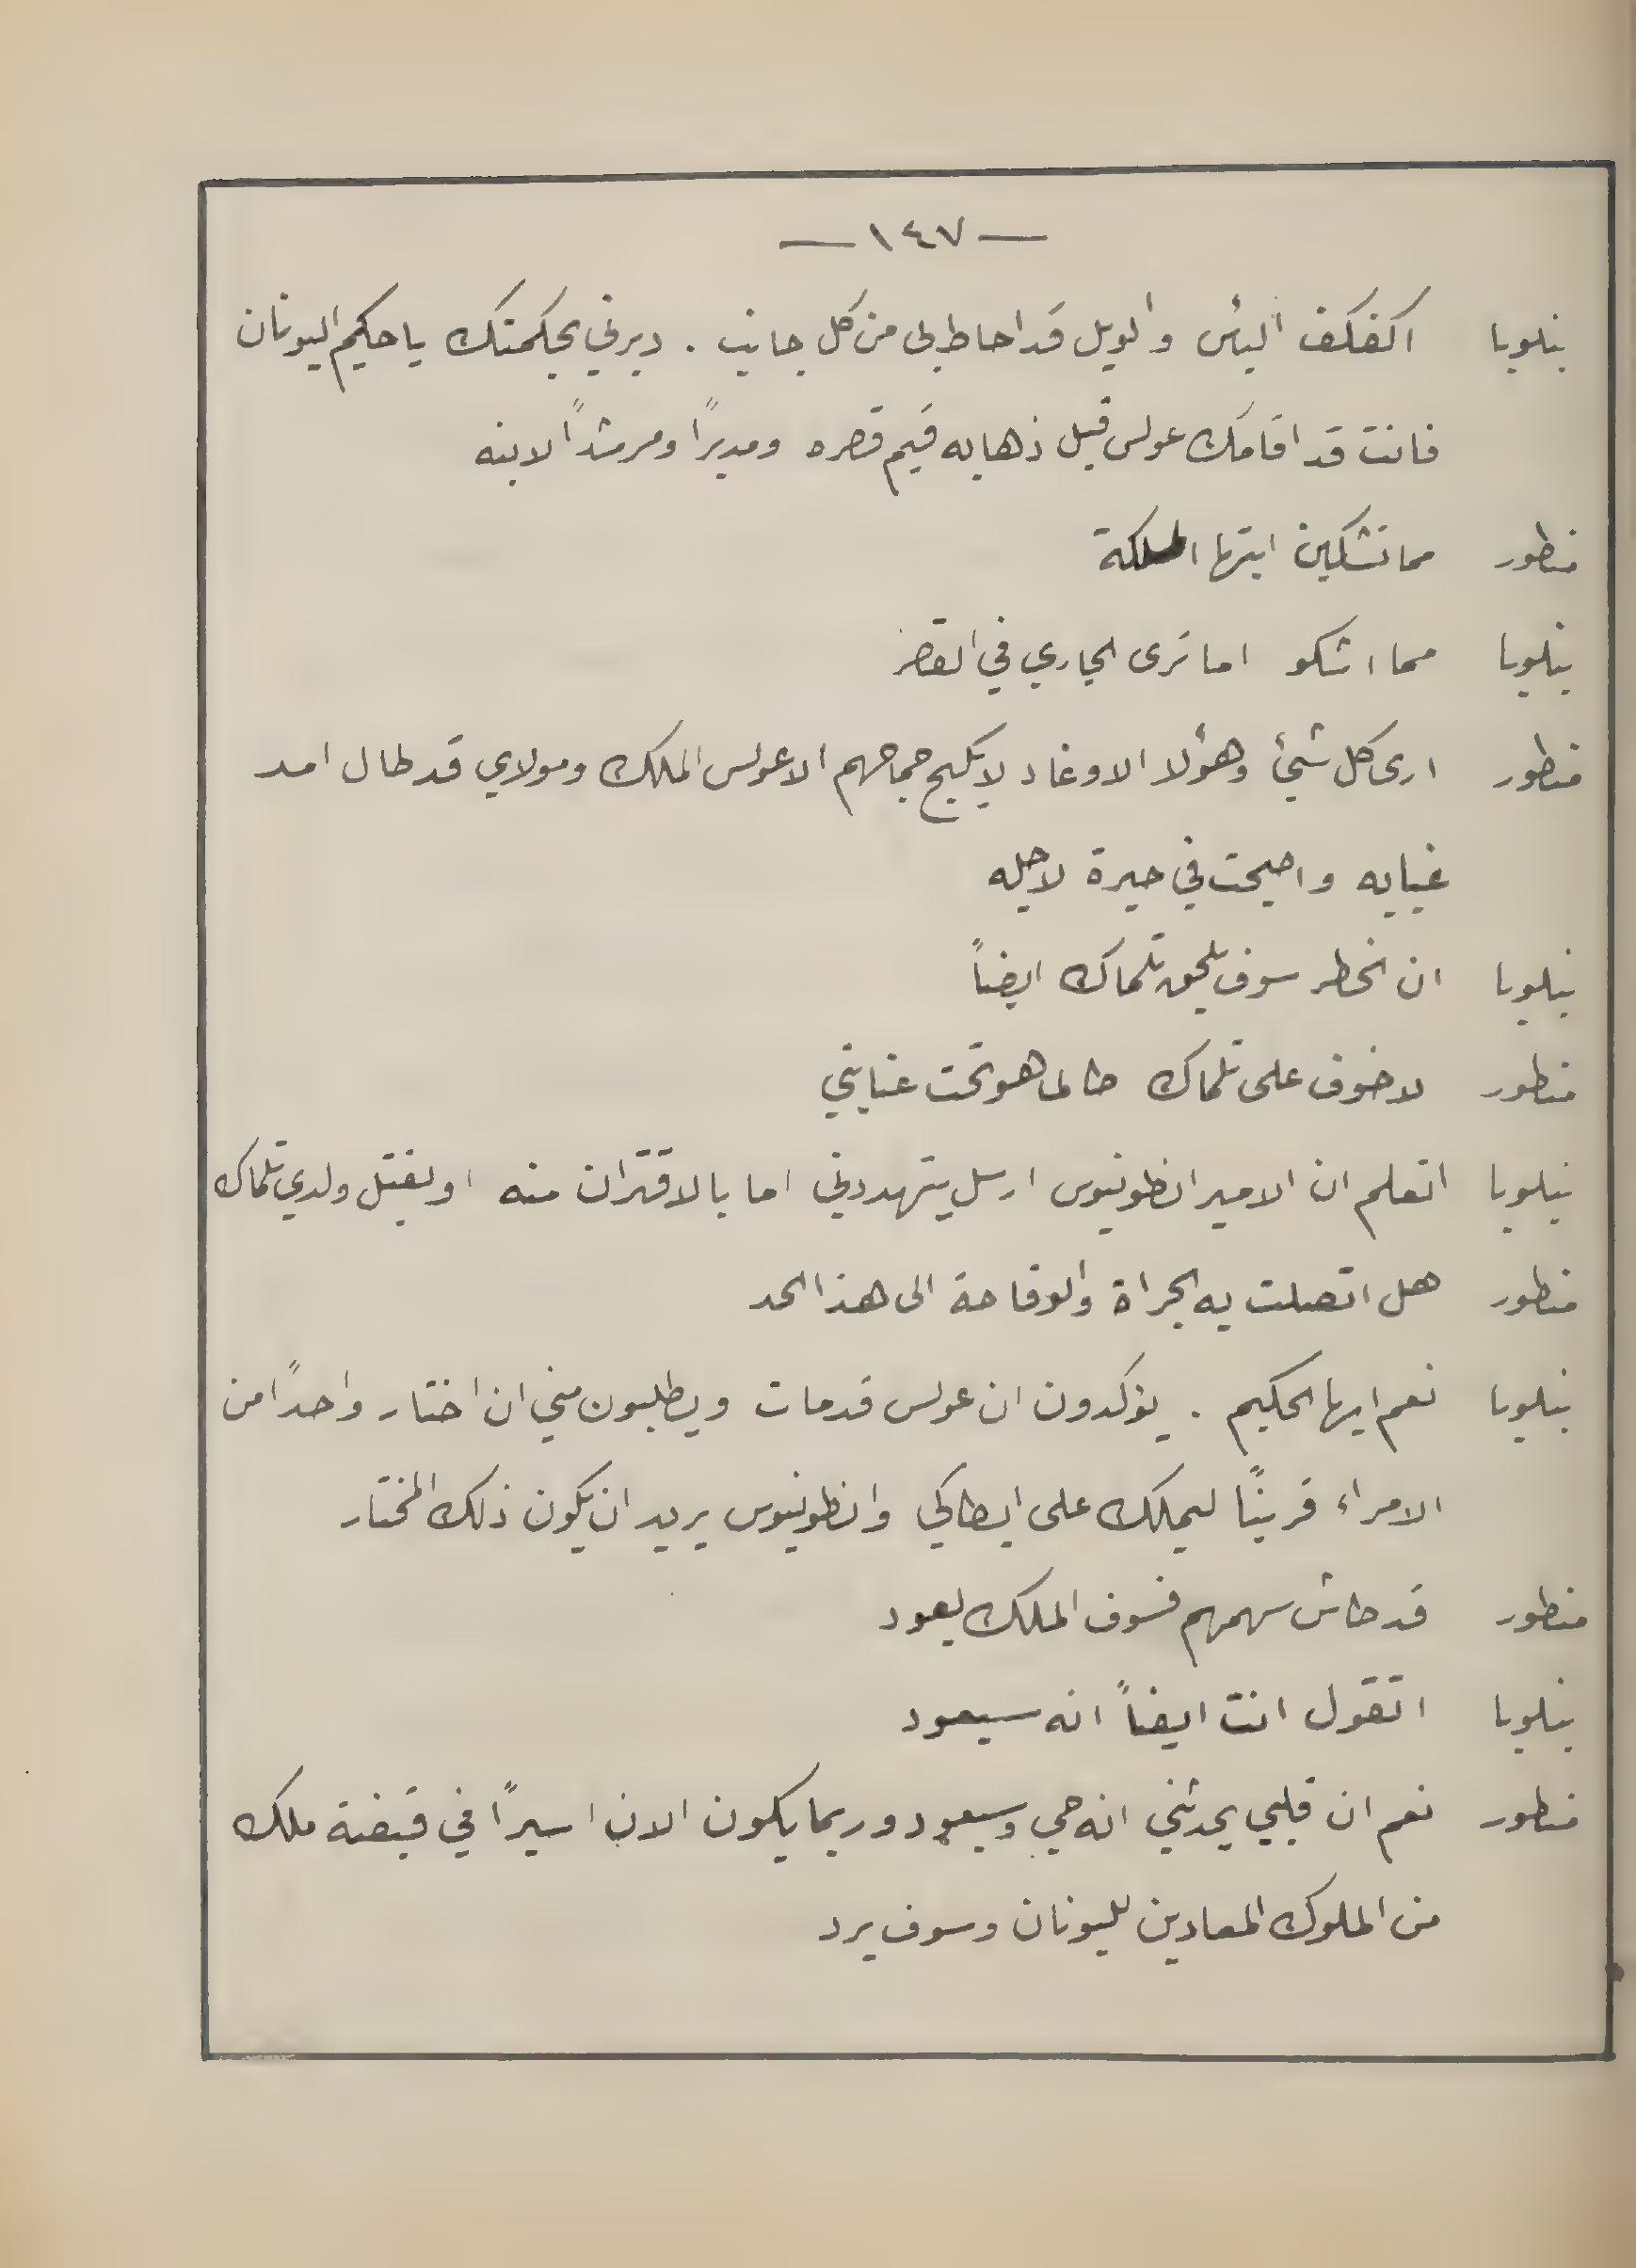 — ١٤٧ —
بنلوبا اكفكف اليأس والويل قد احاط بي من كل جانب . دبرني بحكمتك يا حكيم اليونان
فانت قد اقامك عولس قبل ذهابه قيم قصره ومديرًا ومرشدًا لابنه
منطور مما تشكين ايتها الملكة
بنلوبا مما اشكو اما ترى الجاري في القصر
منطور ارى كل شيئ وهؤلا الاوغاد لا يكبح جماحهم الا عولس الملك ومولاي قد طال امد
غيابه واصبحت في حيرة لاجله
بنلوبا ان الخطر سوف يلحق تلماك ايضاً
منطور لا خوف على تلماك طالما هو تحت عنايتي
بنلوبا اتعلم ان الامير انطونيوس ارسل يتهددني اما بالاقتران منه او بقتل ولدي تلماك
منطور هل اتصلت به الجراة والوقاحة الى هذا الحد
بنلوبا نعم ايها الحكيم . يؤكدون ان عولس قد مات ويطلبون مني ان اختار واحدًا من
الامراء قرينًا ليملك على ايطاكي وانطونيوس يريد ان يكون ذلك المختار
منطور قد طاش سهمهم فسوف الملك يعود
بنلوبا اتقول انت ايضاً انه سيعود
منطور نعم ان قلبي يحدثني انه حي وسيعود وربما يكون الان اسيرًا في قبضة ملك
من الملوك المعادين لليونان وسوف يرد